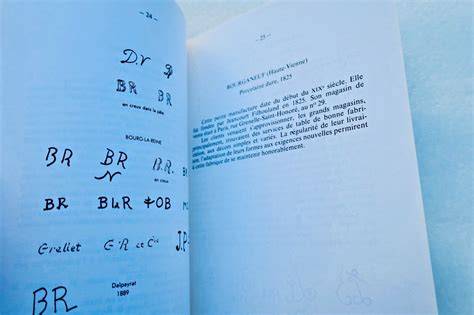 – 24 –
D.V
BR BR
en creux dans la pâte
BOURG-LA-REINE
BR BR B.R.
N
en creux
BR BLR OB
Greliet G.R et Cie J.P
BR
Delpeyrat
1889
– 25 –
BOURGANEUF (Haute-Vienne)
Porcelaine dure, 1825
Cette petite manufacture date du début du XIXe siècle. Elle
fut fondée par Harcourt Filhouland en 1825. Son magasin de
vente était à Paris, rue Grenelle-Saint-Honoré, au no 29.
Les clients venaient s'approvisionner, les grands magasins,
principalement, trouvaient des services de table de bonne fabri-
cation, aux décors simples et variés. La régularité de leur livrai-
son, l'adaptation de leurs formes aux exigences nouvelles permirent
à cette fabrique de se maintenir honorablement.